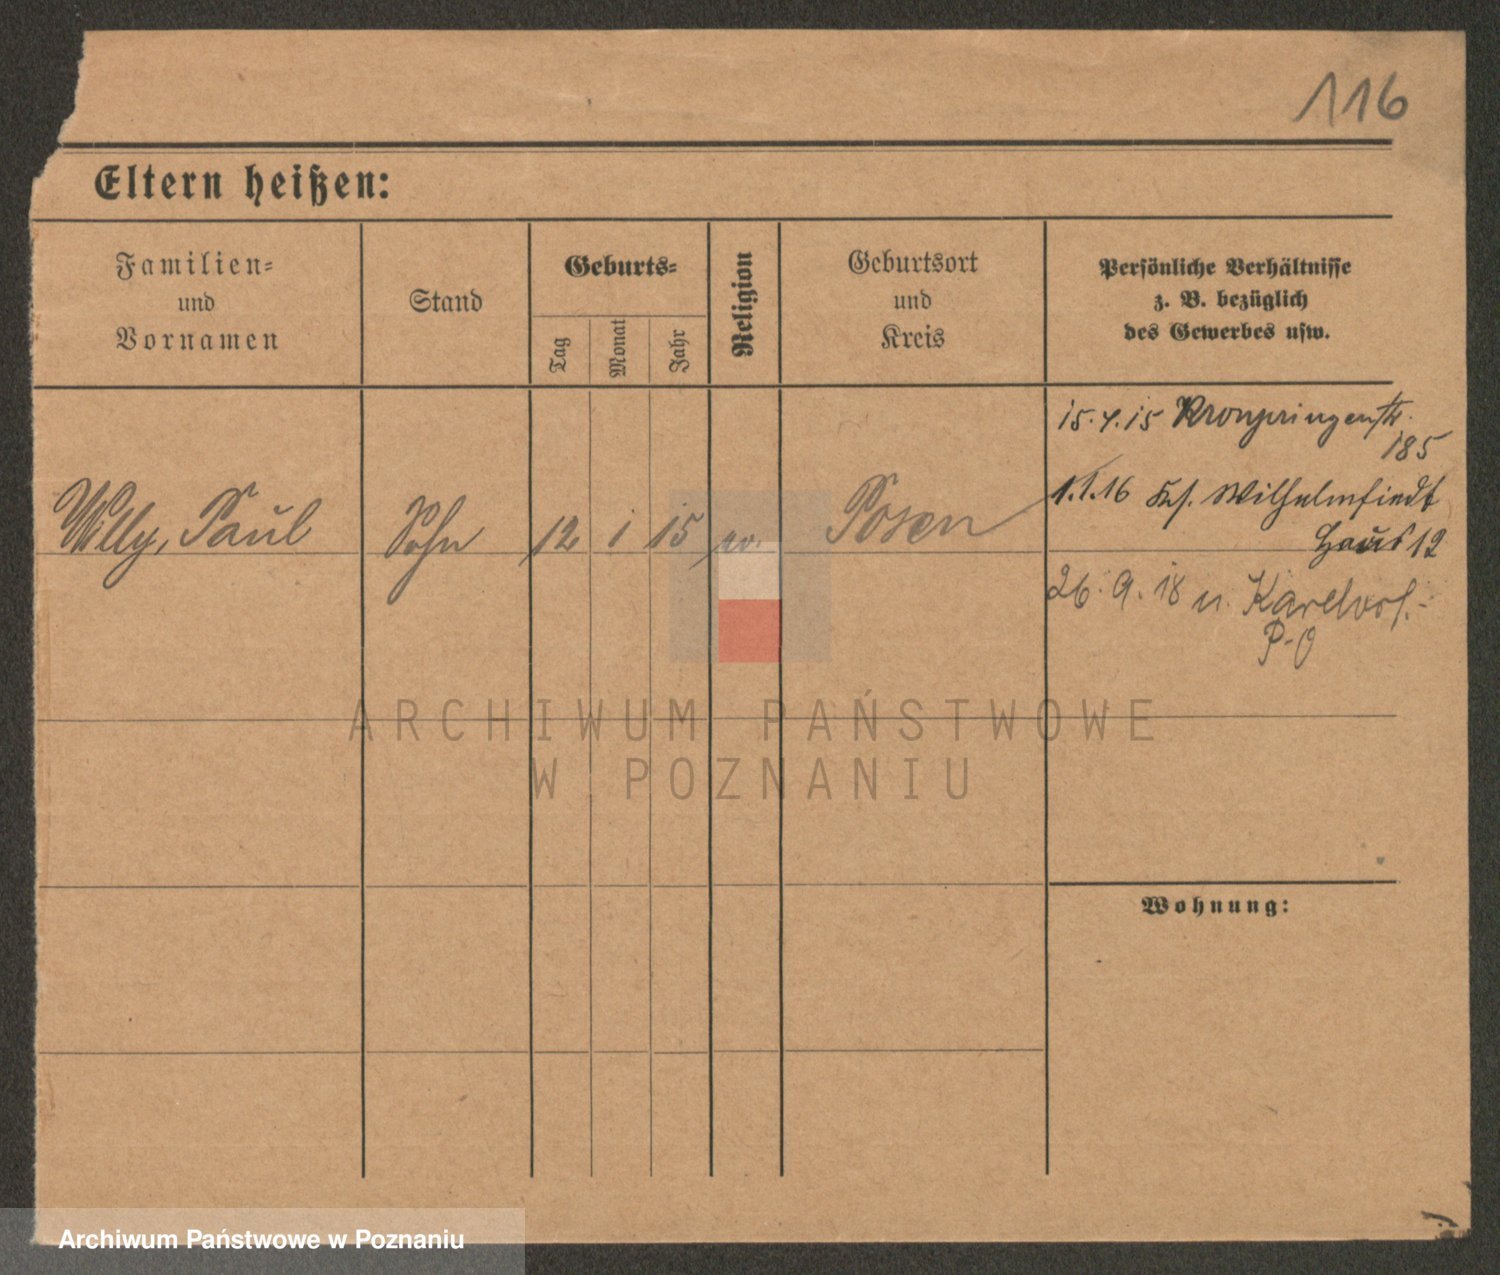 116
Eltern heißen:
Familien=
und
Vornamen
Stand
Geburts=
Tag
Monat
Jahr
Religion
Geburtsort
und
Kreis
Persönliche Verhältnisse
z. B. bezüglich
des Gewerbes usw.
15.4.15 Kronprinzenstr.
185
Willy, Paul
Sohn
12
1
15
ev.
Posen
1.1.16 Kf. Wilhelmfiedt
Haus 12
26.9.18 n.
P-O
Wohnung:
ARCHIWUM PAŃSTWOWE
W POZNANIU
Archiwum Państwowe w Poznaniu